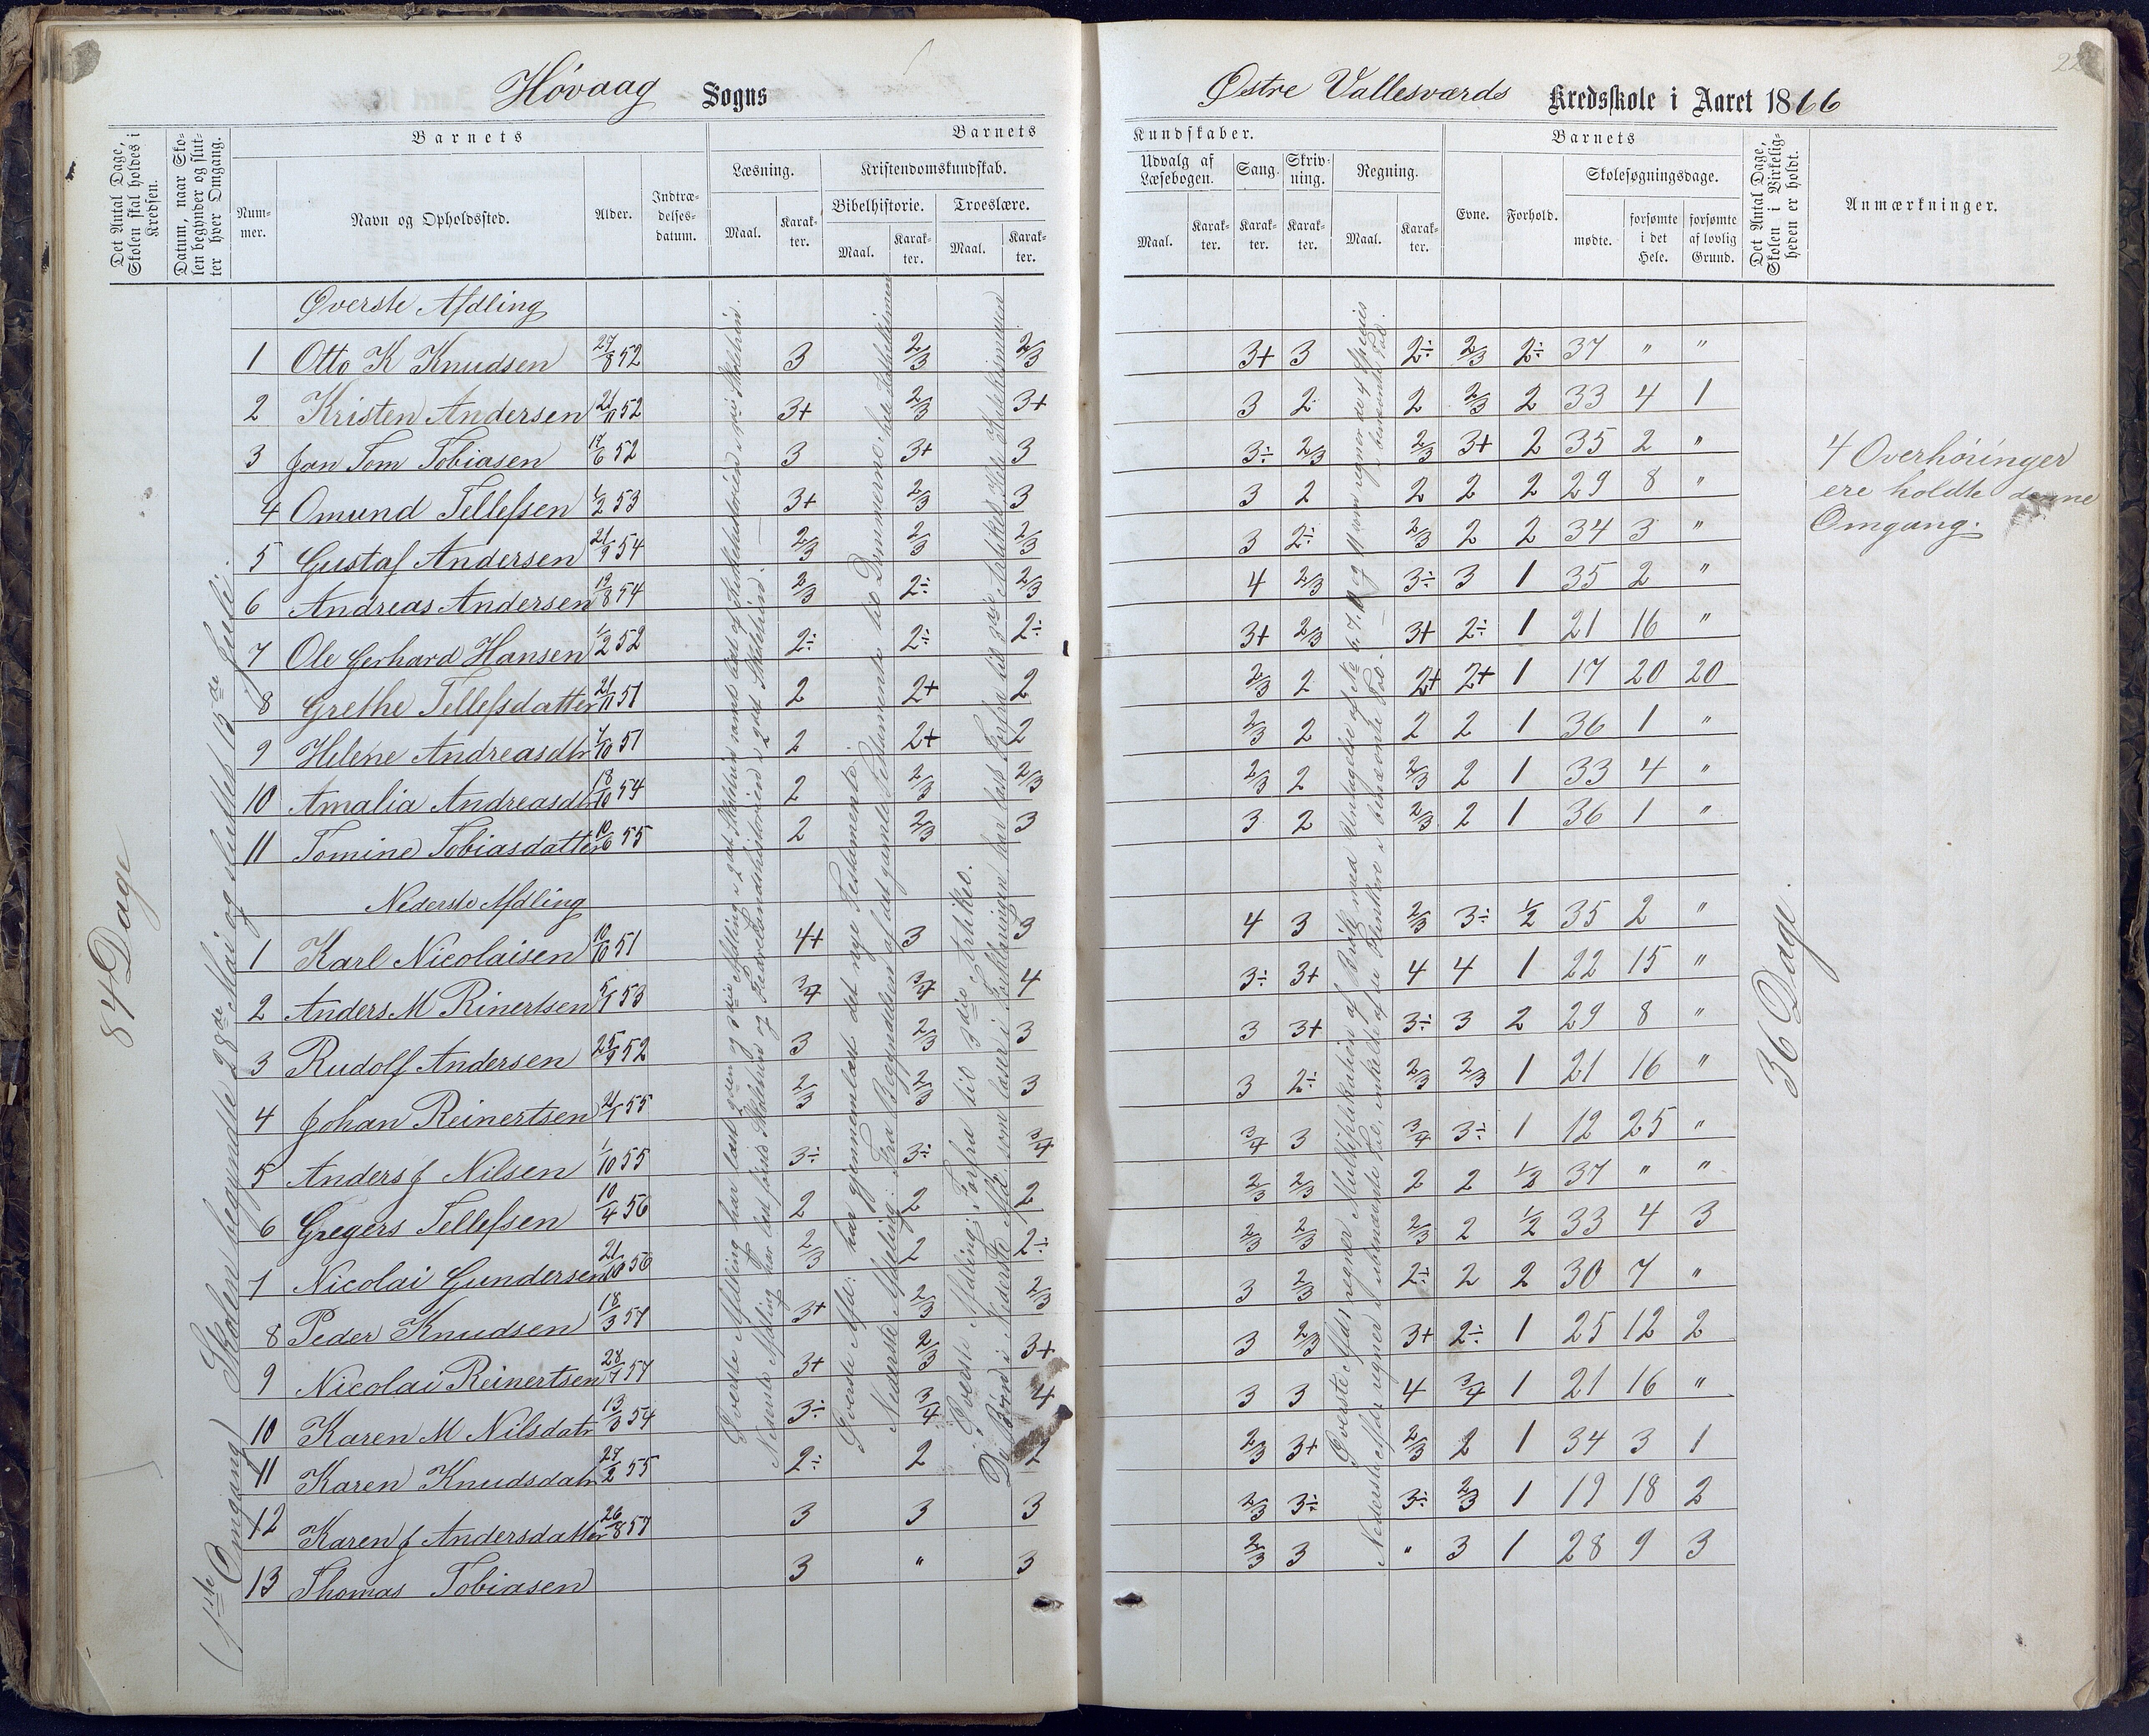 Høvaag Sogns
Østre Vallesværds Kredsskole i Aaret 1866
22
Det Antal Dage, Skolen skal holdes i Kredsen.
Datum, naar Skolen begynder og slutter hver Omgang.
Barnets
Nummer.
Navn og Opholdssted.
Alder.
Indtrædelsesdatum.
Barnets
Læsning.
Maal.
Karakter.
Kristendomskundskab.
Bibelhistorie.
Maal.
Karakter.
Troeslære.
Maal.
Karakter.
Kundskaber.
Udvalg af Læsebogen.
Maal.
Karakter.
Sang.
Karakter.
Skrivning.
Karakter.
Regning.
Maal.
Karakter.
Barnets
Evne.
Forhold.
Skolesøgningsdage.
mødte.
forsømte i det Hele.
forsømte af lovlig Grund.
Det Antal Dage, Skolen i Virkeligheden er holdt.
Anmærkninger.
84 Dage
(1ste Omgang) Skolen begyndte 28de Mai og sluttet 13de Juli.
Øverste Afdling
1 Otto K Knudsen 27/8 52 3 2/3 2/3 3+ 3 2÷ 2/3 2÷ 37 " "
2 Kristen Andersen 21/11 52 3+ 2/3 3+ 3 2 2 2/3 2 33 4 1
3 Jan Tom Tobiasen 17/6 52 3 3+ 3 3÷ 2/3 2/3 3+ 2 35 2 "
4 Omund Tellefsen 1/2 53 3+ 2/3 3 3 2 2 2 2 29 8 "
5 Gustaf Andersen 21/9 54 2/3 2/3 2/3 3 2÷ 2/3 2 2 34 3 "
6 Andreas Andersen 19/8 54 2/3 2÷ 2/3 4 2/3 3÷ 3 1 35 2 "
7 Ole Gerhard Hansen 1/2 52 2÷ 2÷ 2÷ 3+ 2/3 3+ 2÷ 1 21 16 "
8 Grethe Tellefsdatter 21/11 51 2 2+ 2 2/3 2 2+ 2+ 1 17 20 20
9 Helene Andreasdtr 1/10 51 2 2+ 2 2/3 2 2 2 1 36 1 "
10 Amalia Andreasdtr 18/10 54 2 2/3 2/3 2/3 2 2/3 2 1 33 4 "
11 Tomine Tobiasdatter 10/6 55 2 2/3 3 3 2 2/3 2 1 36 1 "
Nederste Afdling
1 Karl Nicolaisen 10/10 51 4+ 3 3 4 3 2/3 3÷ 1/2 35 2 "
2 Anders M Rinertsen 5/1 53 3/4 3/4 4 3÷ 3+ 4 4 1 22 15 "
3 Rudolf Andersen 25/9 52 3 2/3 3 3 3+ 3÷ 3 2 29 8 "
4 Johan Reinertsen 21/1 55 2/3 2/3 3 3 2÷ 2/3 2/3 1 21 16 "
5 Anders J Nilsen 1/10 55 3÷ 3÷ 3/4 3/4 3 3/4 3÷ 1 12 25 "
6 Gregers Tellefsen 10/4 56 2 2 2 2/3 2/3 2 2 1/2 37 " "
7 Nicolai Gundersen 21/10 56 2/3 2 2÷ 2/3 2/3 2/3 2 1/2 33 4 3
8 Peder Knudsen 18/3 57 3+ 2/3 2/3 3 2/3 2÷ 2 2 30 7 "
9 Nicolai Reinertsen 28/1 57 3+ 2/3 3+ 3 2/3 3+ 2÷ 1 25 12 2
10 Karen M Nilsdatr 13/3 54 3÷ 3/4 4 3 3 4 3/4 1 21 16 "
11 Karen Knudsdatr 27/2 55 2÷ 2 2 2/3 3+ 2/3 2 1 34 3 1
12 Karen J Andersdatter 26/8 57 3 3 3 2/3 3÷ 3÷ 2/3 1 19 18 2
13 Thomas Tobiasen 3 " 3 2/3 3 " 3 1 28 9 3
Øverste Afdling har læst
Nederste Afdling har læst
Øverste Afd: har gjennemlæst det nye Testamente.
Nederste Afdeling: Fra Begyndelsen af det gamle Testamente til Dommerne
Øverste Afdling: Forfra til 3die Artikel.
De Børn i Nederste Afd: som læser i Forklaringen har læst forfra til 3die Artikel
Øverste Afd: regner Multiplikation af Brøk med Undtagelse af No 6. 7. 10 og 11 som regner de 4 Species i benævnte Tal.
36 Dage.
4 Overhøringer
ere holdte denne
Omgang.